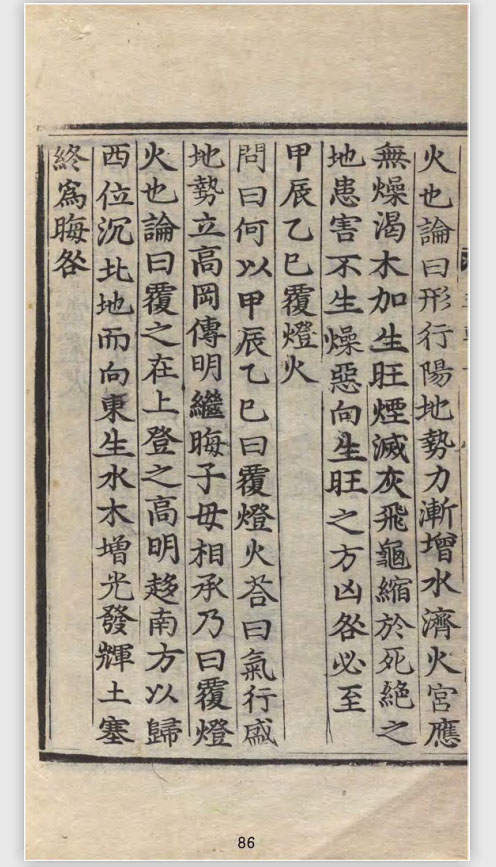 火也論曰形行陽地勢力漸增水濟火宮應
無燥渴木加生旺煙滅灰飛龜縮於死絶之
地患害不生燥惡向生旺之方凶咎必至
甲辰乙巳覆燈火
問曰何以甲辰乙巳曰覆燈火荅曰氣行盛
地勢立高岡傳明繼晦子母相承乃曰覆燈
火也論曰覆之在上登之高明趍南方以歸
西位沉北地而向東生水木增光發輝土塞
終爲晦咎
86